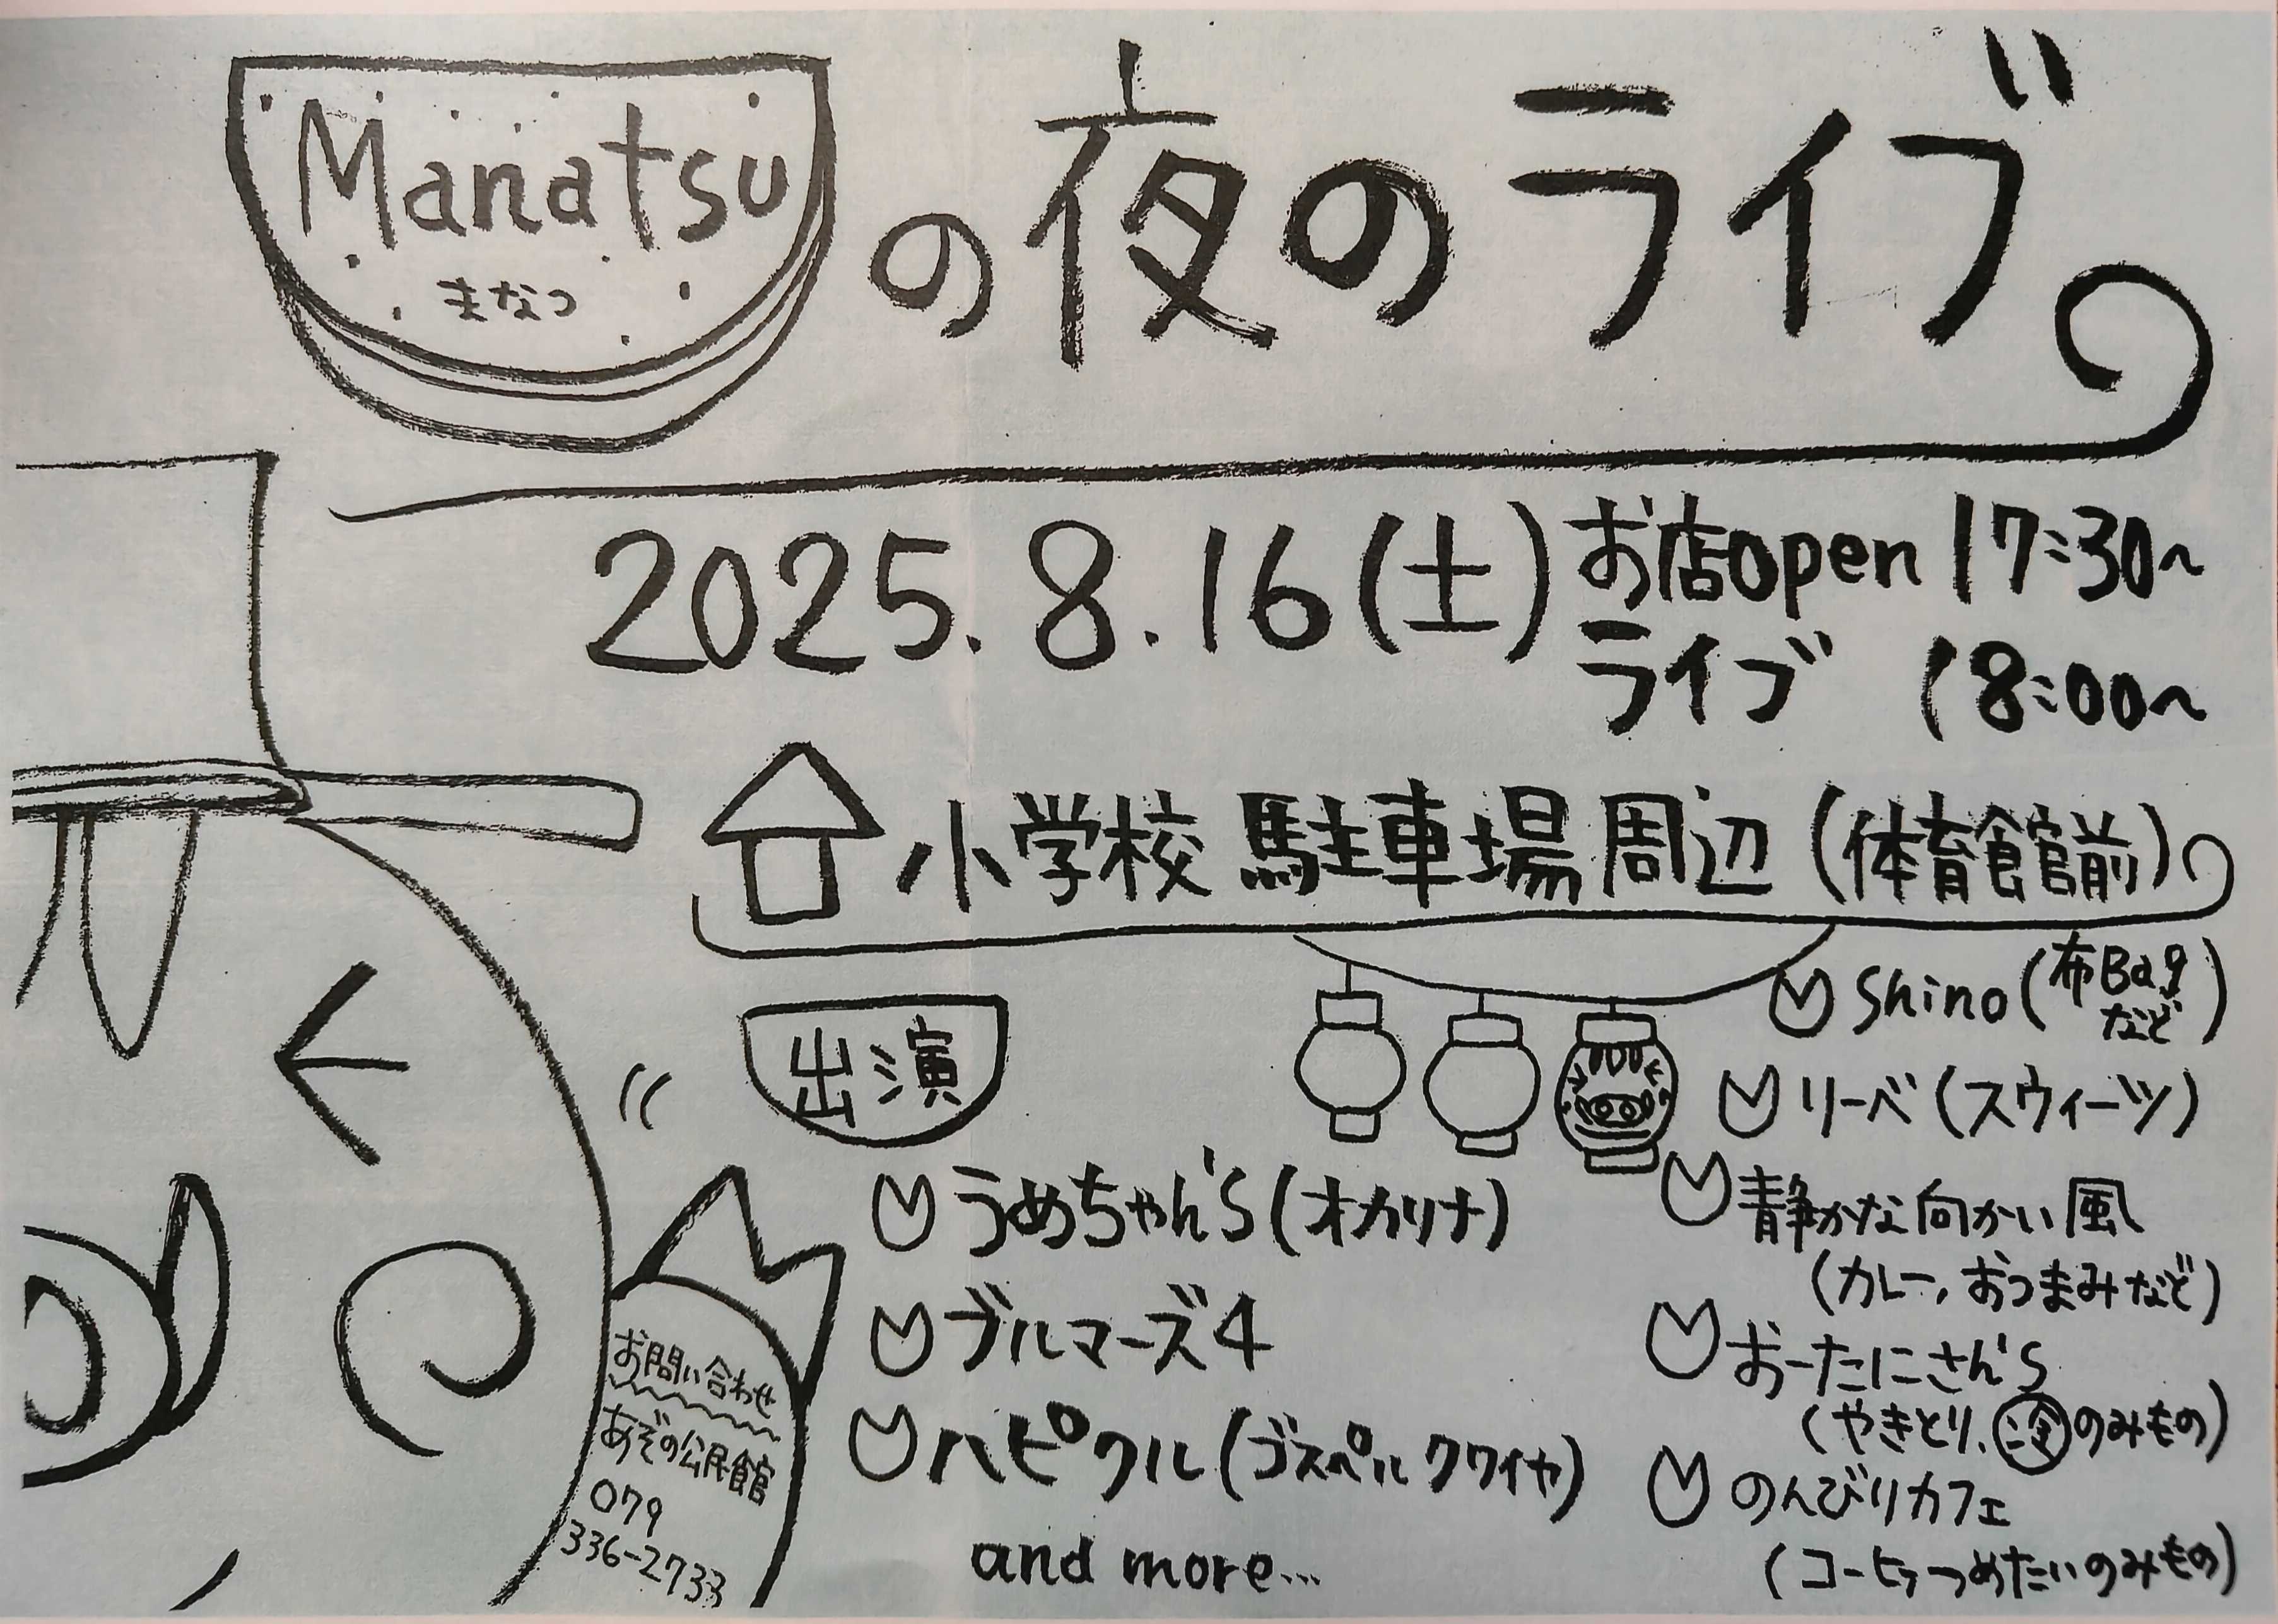 Manatsu
まなつ
の夜のライブ
2025.8.16(土)
お店open 17:30～
ライブ 18:00～
小学校 駐車場 周辺 (体育館前)
出演
うめちゃん'S(オカリナ)
ブルマーズ4
ハピクル(ゴスペルクワイヤ)
and more...
Shino(布Bag
など)
リーベ(スウィーツ)
静かな向かい風
(カレー、おつまみなど)
おーたにさん'S
(やきとり、冷のみもの)
のんびりカフェ
(コーヒーつめたいのみもの)
お問い合わせ
あぞの公民館
079
336-2733